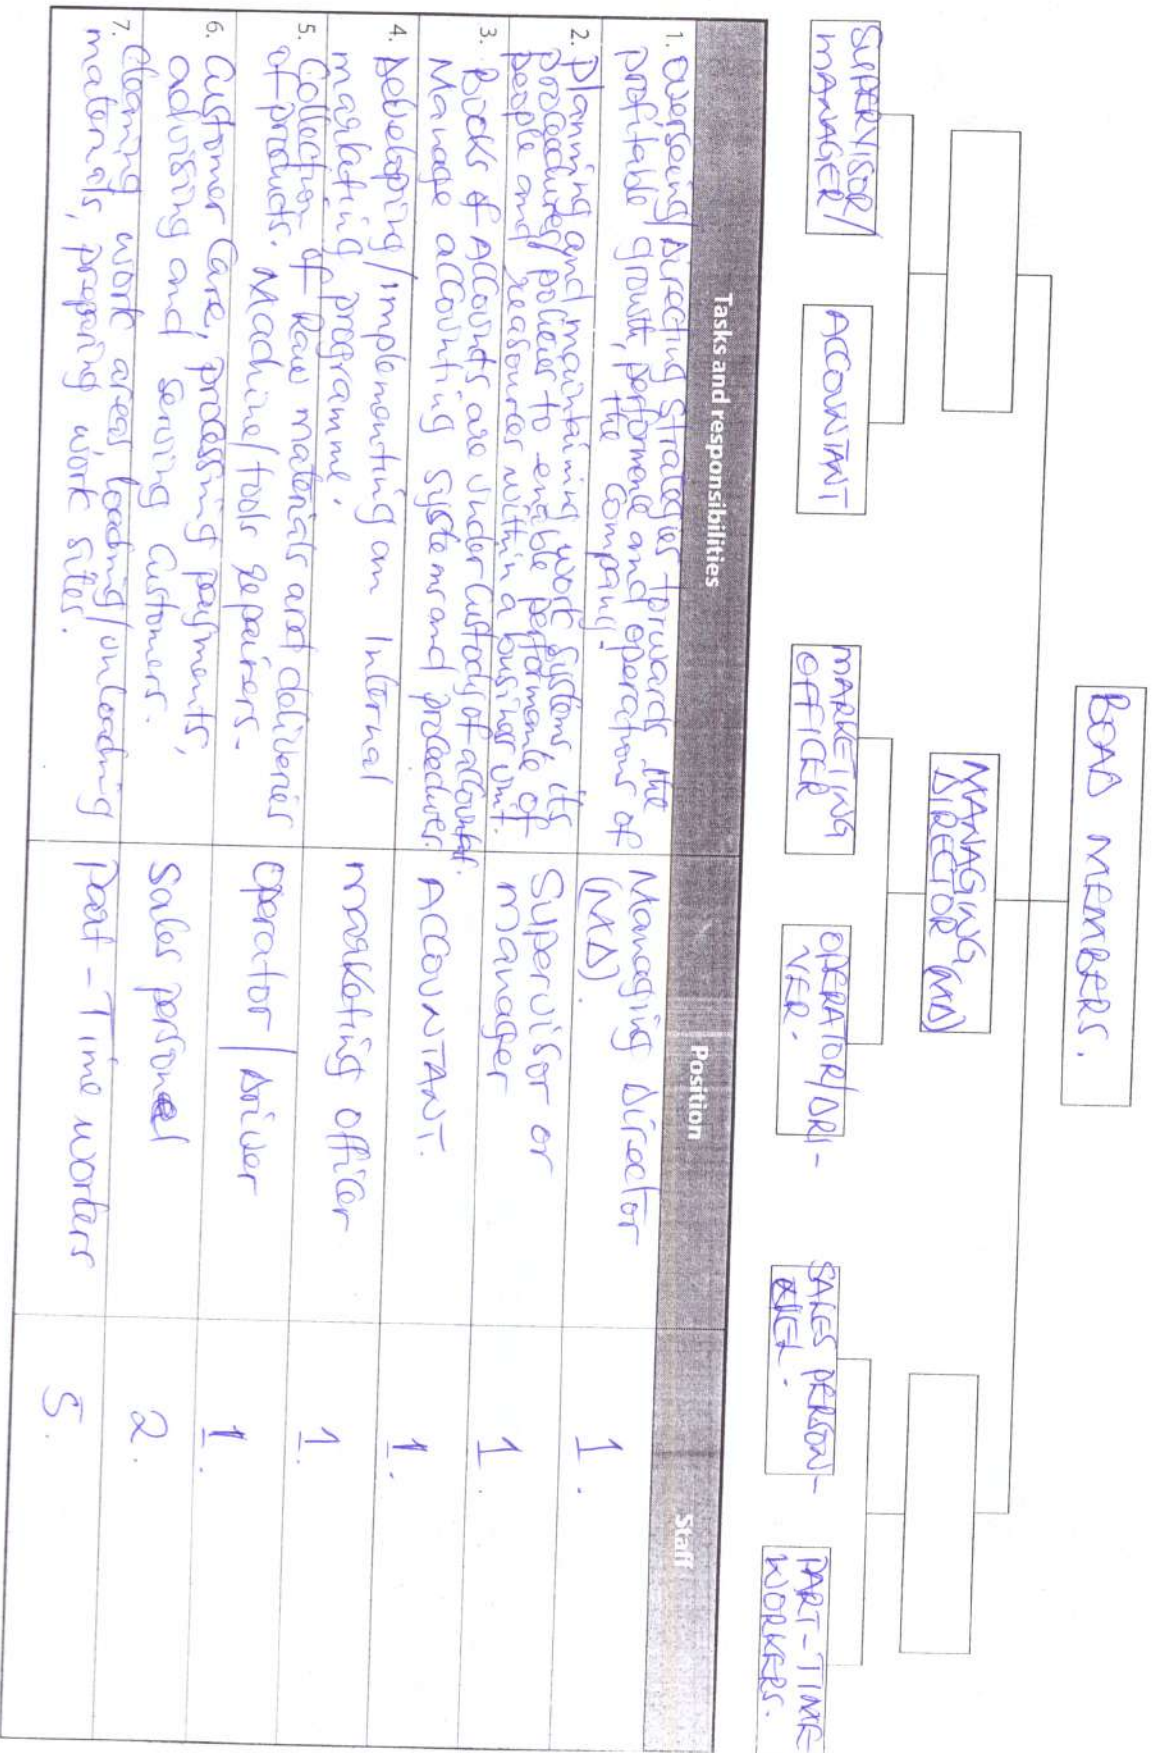 BOAD MEMBERS.
MANAGING
DIRECTOR (MD)
SUPERVISOR/
MANAGER
ACCOUNTANT
MARKETING
OFFICER
OPERATOR/DRI-
VER.
SALES PERSON-
NEL.
PART-TIME
WORKERS.
Tasks and responsibilities Position Staff
1. Overseing/Directing Strategies towards the
profitable growth, performance and operations of
the company.
Managing Director
(MD).
1.
2. Planning and maintaining work systems, its
procedures/policies to enable performance of
people and reasources within a business unit.
Supervisor or
manager
1.
3. Books of Accounts are under Custody of accountant.
Manage accounting systems and procedures.
ACCOUNTANT.
1.
4. Developing/implementing an Internal
marketing programme.
marketing officer
1.
5. Collection of Raw materials and deliveries
of products. Machine/tools repairers.
Operator/Driver
1.
6. Customer Care, processing payments,
advising and serving Customers.
Sales personel
2.
7. Cleaning work areas, loading/unloading
materials, preparing work sites.
Part-Time workers
5.